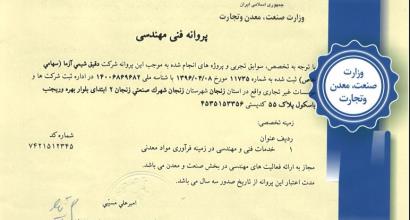 جمهوری اسلامی ایران
وزارت صنعت، معدن وتجارت
پروانه فنی مهندسی
با توجه به تخصص، سوابق تجربی و پروژه های انجام شده به موجب این پروانه شرکت دقیق شیمی آزما (سهامی
خاص) ثبت شده به شماره ۱۱۷۳۵ مورخ ۱۳۹۶/۰۴/۰۸ با شناسه ملی ۱۴۰۰۶۸۶۹۶۸۲ در اداره ثبت شرکت ها و
موسسات غیر تجاری واقع در استان زنجان شهرستان زنجان شهرک صنعتی زنجان ۲ ابتدای بلوار بهره وری جنب
باسکول پلاک ۵۵ کدپستی ۴۵۳۵۱۵۳۳۵۶
زمینه تخصصی:
ردیف عنوان
شماره کد
۱ خدمات فنی و مهندسی در زمینه فرآوری مواد معدنی
۷۴۲۱۵۱۲۳۴۵
مجاز به ارائه فعالیت های مهندسی در بخش صنعت و معدن می باشد.
مدت اعتبار این پروانه از تاریخ صدور سه سال می باشد.
امیرعلی مسیبی
وزارت
صنعت، معدن
وتجارت